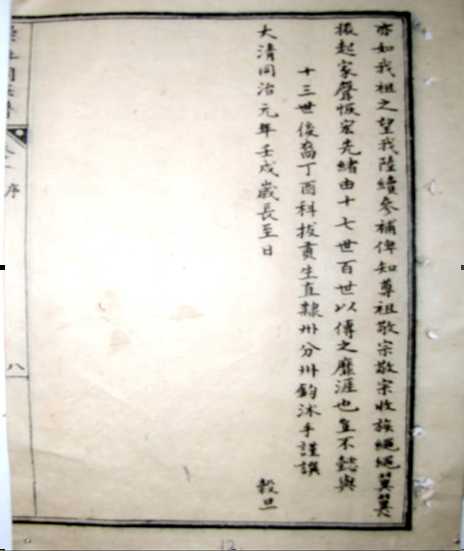 亦如我祖之望我陸續參補俾知尊祖敬宗敬宗收族繩繩冀冀
振起家聲恢宏先緒由十七世百世以傳之靡涯也豈不懿與
十三世後裔丁酉科拔貢生直隸州分州鈞沐手謹譔
大清同治元年壬戌歲長至日 穀旦
序
八